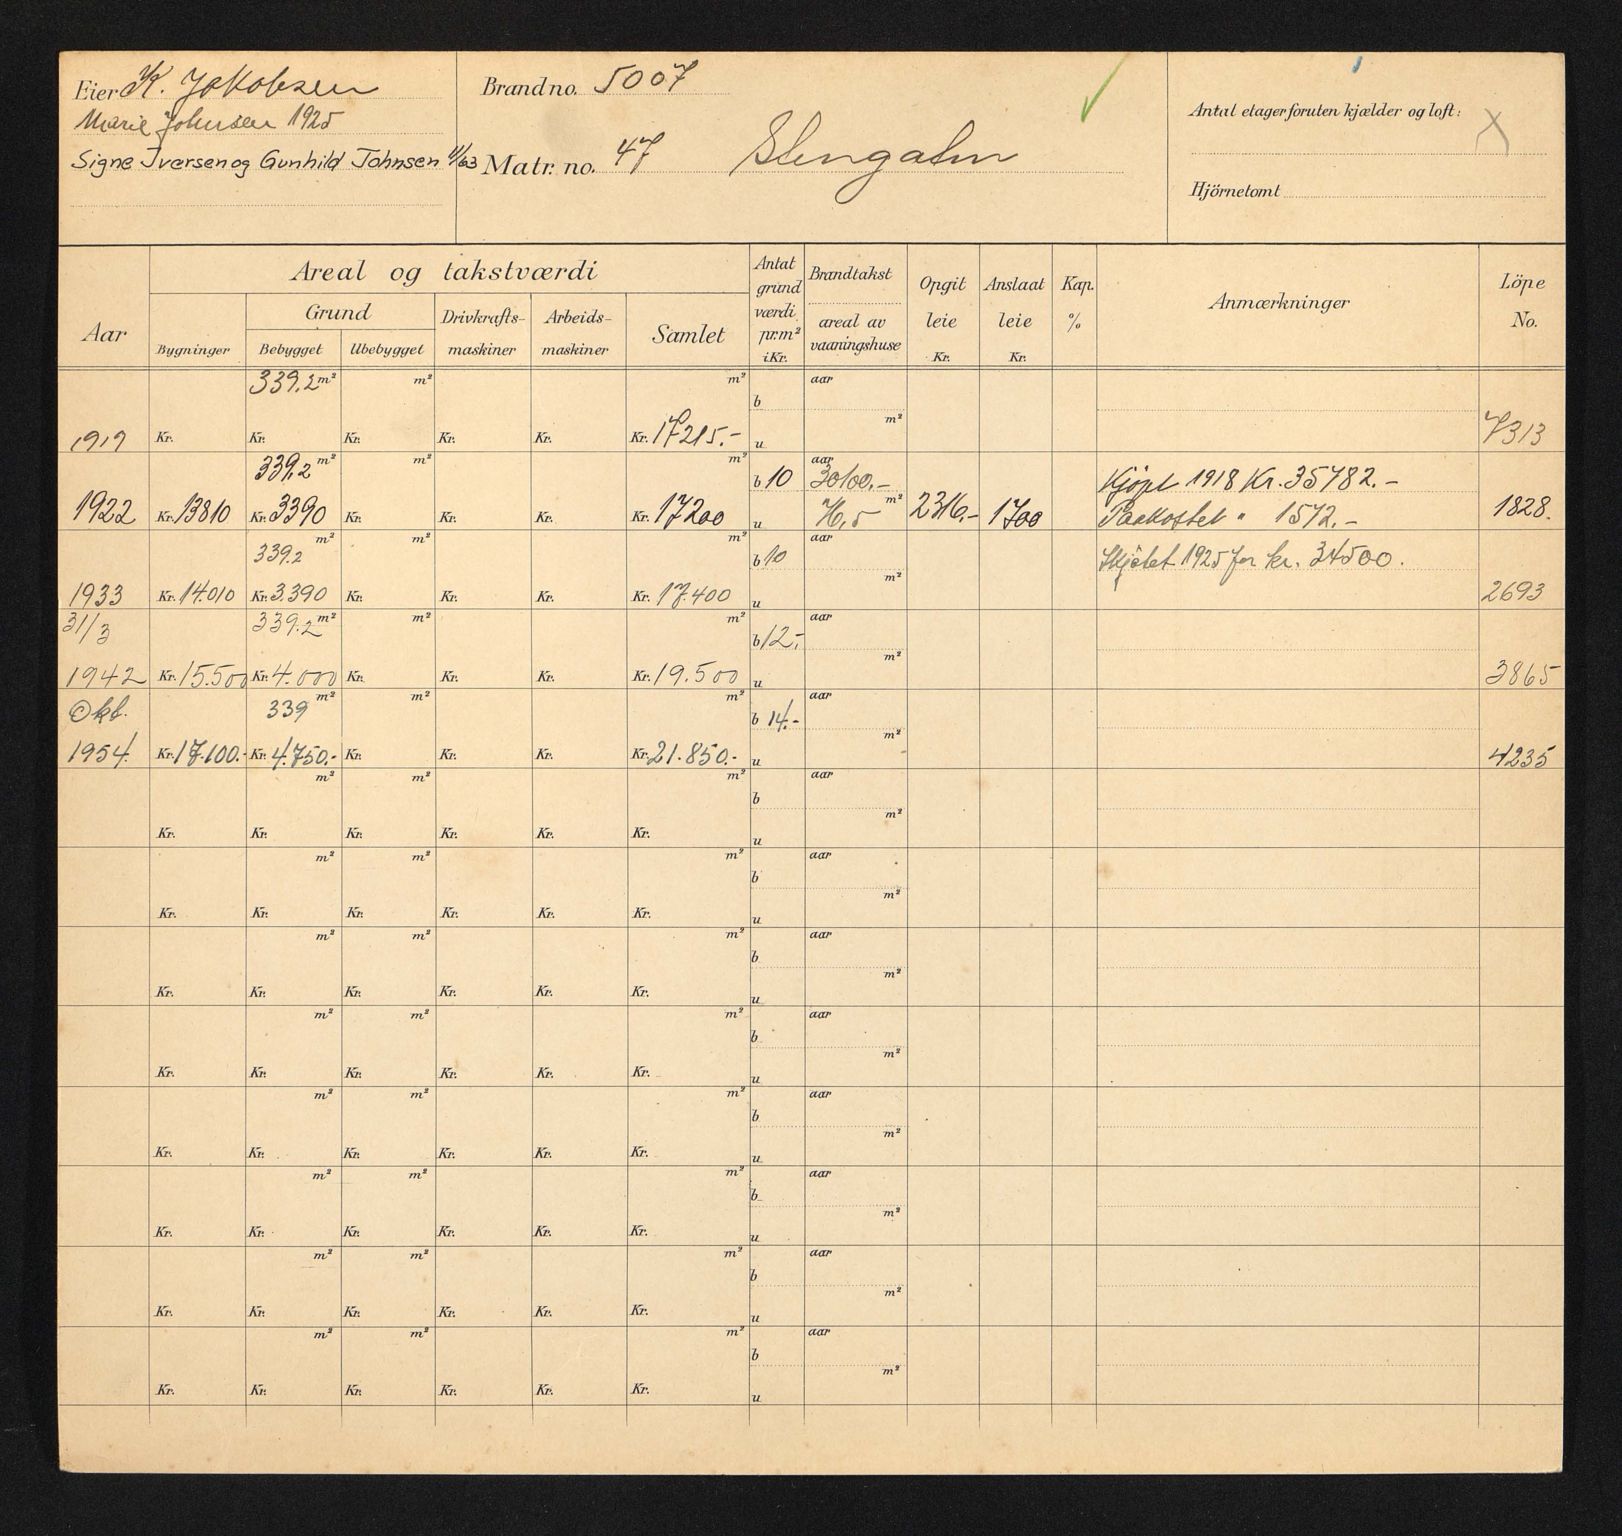 Eier K. Jakobsen
Marie Johnsen 1925
Signe Iversen og Gunhild Johnsen 1/63
Brand no. 5007
Matr. no. 47 Stengaten
Antal etager foruten kjælder og loft:
Hjörnetomt
Aar
Areal og takstværdi
Bygninger
Grund
Bebygget
Ubebygget
Drivkrafts-
maskiner
Arbeids-
maskiner
Samlet
Antat
grund
værdi
pr.m²
i Kr.
Brandtakst
areal av
vaaningshuse
Opgit
leie
Kr.
Anslaat
leie
Kr.
Kap.
%
Anmærkninger
Löpe
No.
339,2 m² m² m² aar
b
m²
1919 Kr. Kr. Kr. Kr. Kr. Kr. 17215.- u 7313
339,2 m² m² m² aar
b 10 30100,- Kjöpt 1918 Kr. 35782.-
m²
1922 Kr. 13810 Kr. 3390 Kr. Kr. Kr. Kr. 17200 u 76,5 2316,- 1700 Paakostet " 1572.- 1828.
339.2 m² m² m² aar
b 10 Skjötet 1925 for kr. 34500.
m²
1933 Kr. 14.010 Kr. 3.390 Kr. Kr. Kr. Kr. 17.400 u 2693
31/3 339.2 m² m² m² aar
b 12,-
m²
1942 Kr. 15.500 Kr. 4.000 Kr. Kr. Kr. Kr. 19.500 u 3865
Okt. 339 m² m² m² aar
b 14.-
m²
1954. Kr. 17.100.- Kr. 4.750.- Kr. Kr. Kr. Kr. 21.850.- u 4235
m² m² m² aar
b
m²
Kr. Kr. Kr. Kr. Kr. Kr. u
m² m² m² aar
b
m²
Kr. Kr. Kr. Kr. Kr. Kr. u
m² m² m² aar
b
m²
Kr. Kr. Kr. Kr. Kr. Kr. u
m² m² m² aar
b
m²
Kr. Kr. Kr. Kr. Kr. Kr. u
m² m² m² aar
b
m²
Kr. Kr. Kr. Kr. Kr. Kr. u
m² m² m² aar
b
m²
Kr. Kr. Kr. Kr. Kr. Kr. u
m² m² m² aar
b
m²
Kr. Kr. Kr. Kr. Kr. Kr. u
m² m² m² aar
b
m²
Kr. Kr. Kr. Kr. Kr. Kr. u